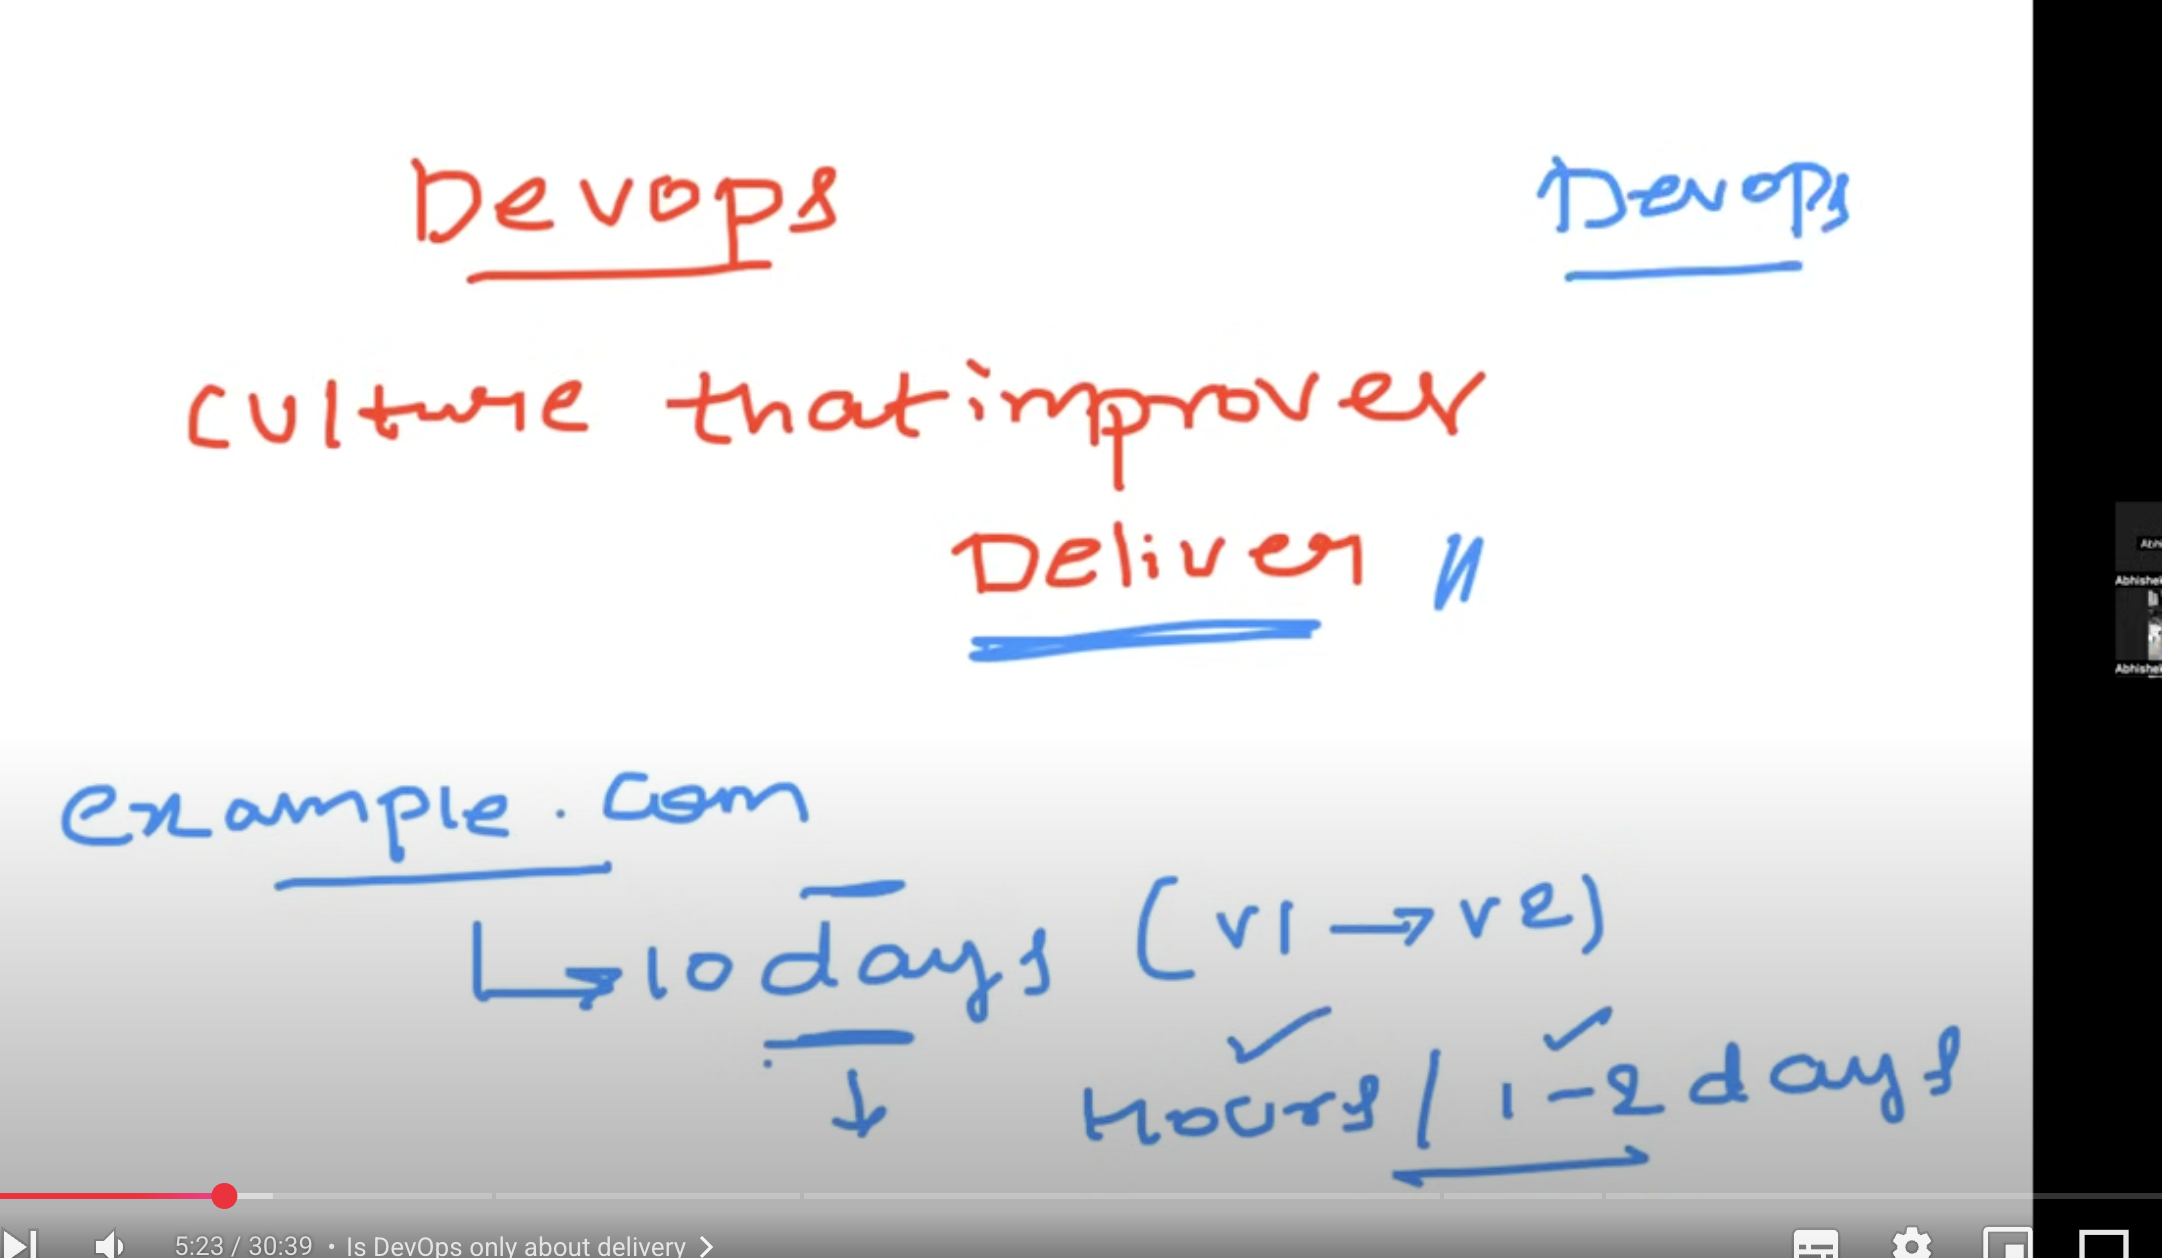 Devops Devops
culture that improves
Deliver y
example.com
10 days (v1 → v2)
Hours / 1-2 days
Abhishek
Abhishek
5:23 / 30:39 • Is DevOps only about delivery